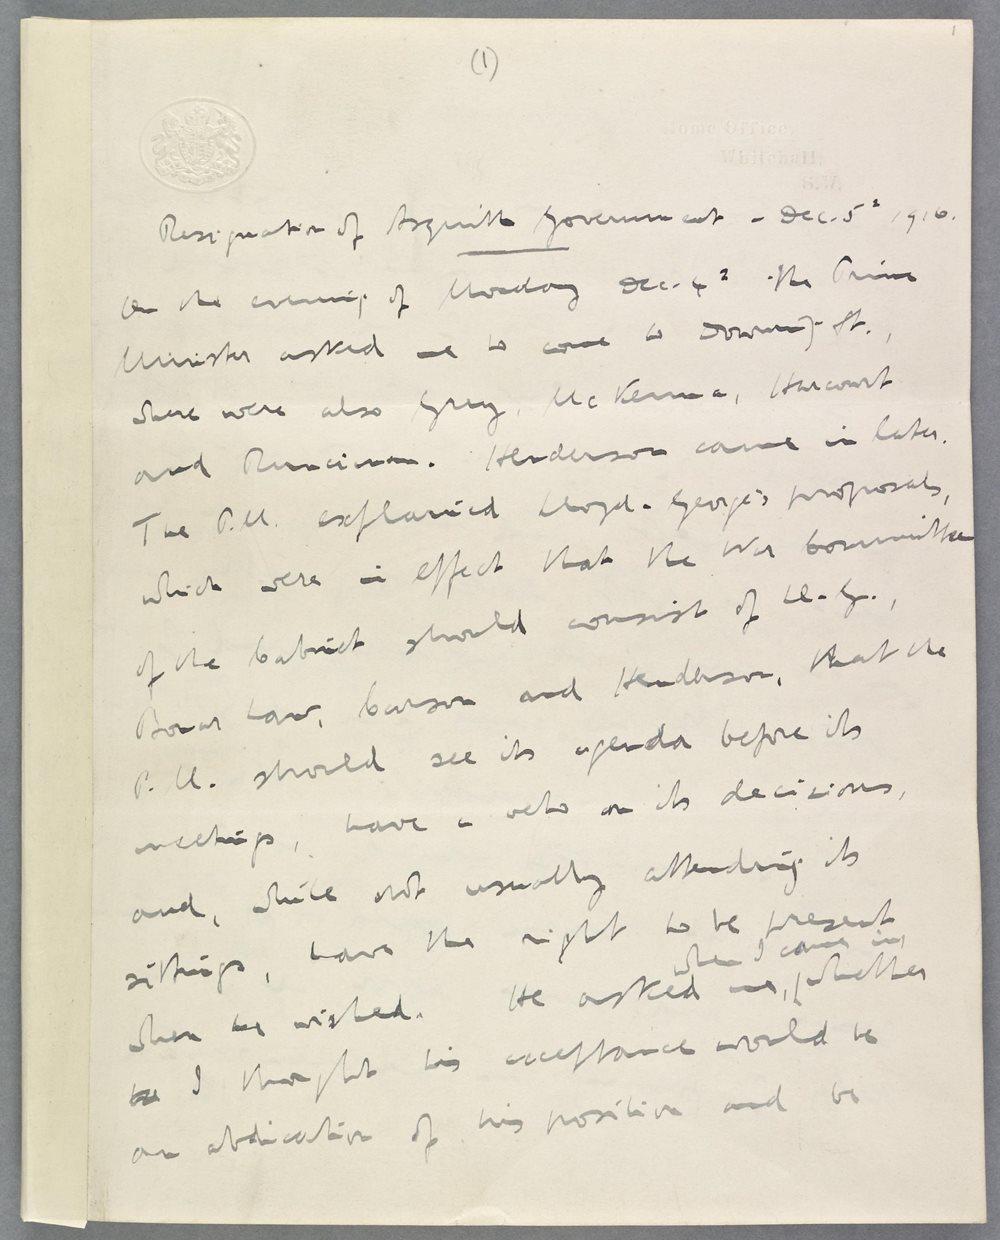 (1)
1
Home Office,
Whitehall,
S.W.
Resignation of Asquith Government - Dec. 5th 1916.
On the evening of Monday Dec. 4th the Prime
Minister asked me to come to Downing St.,
where were also Grey, McKenna, Harcourt
and Runciman. Henderson came in later.
The P.M. explained Lloyd-George's proposals,
which were in effect that the War Committee
of the Cabinet should consist of Ll.-G.,
Bonar Law, Carson and Henderson, that the
P.M. should see its agenda before its
meetings, have a veto on its decisions,
and, while not usually attending its
sittings, have the right to be present
when I came in,
when he wished. He asked me, whether
I thought his acceptance would be
an abdication of his position and be